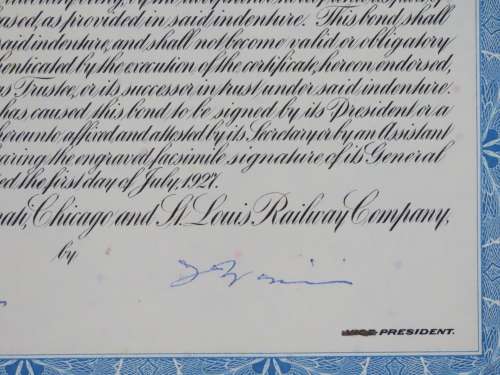 ased, as provided in said indenture. This bond shall
said indenture, and shall not become valid or obligatory
henticated by the execution of the certificate, hereon endorsed,
as Trustee, or its successor in trust under said indenture.
has caused this bond to be signed by its President or a
hereunto affixed and attested by its Secretary or by an Assistant
earing the engraved facsimile signature of its General
ed the first day of July, 1927.
nati, Chicago and St. Louis Railway Company,
by
PRESIDENT.